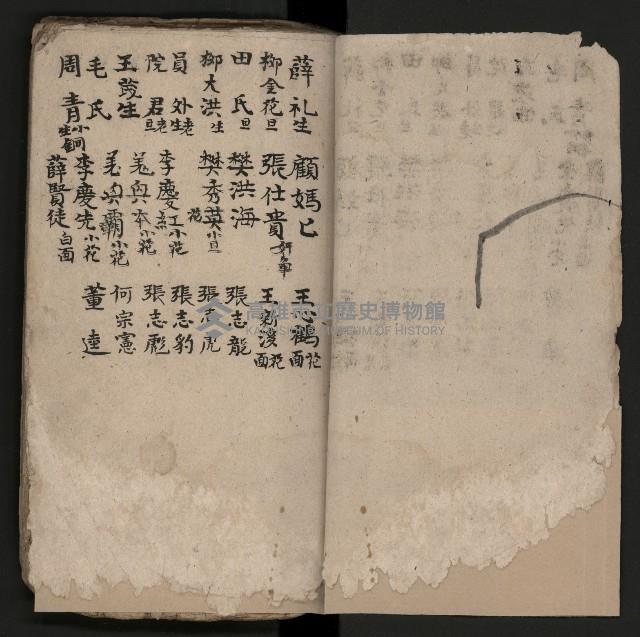 薛礼生
柳金花旦
田氏旦
柳大洪生
員外老生
院君老旦
王茂生
毛氏
周青小生銅
顧媽匕
張仕貴奸
樊洪海
樊秀英小旦
李慶紅小花
姜興本小花
姜興霸小花
李慶先小花
薛賢徒白面
王心鶴花面
王新凌花面
張志龍
張志虎
張志豹
張志彪
何宗憲
董逵
高雄市立歷史博物館
KAOHSIUNG MUSEUM OF HISTORY